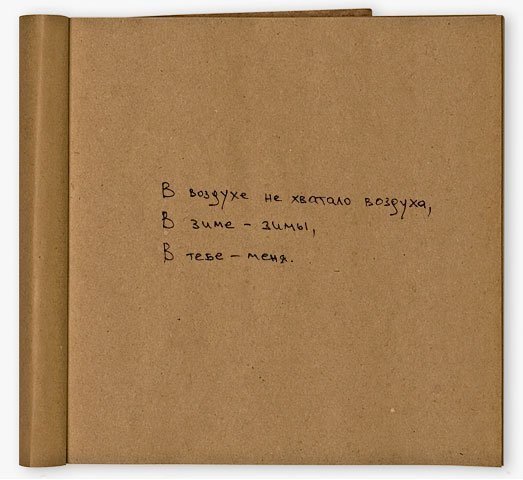 В воздухе не хватало воздуха,
В зиме – зимы,
В тебе – меня.